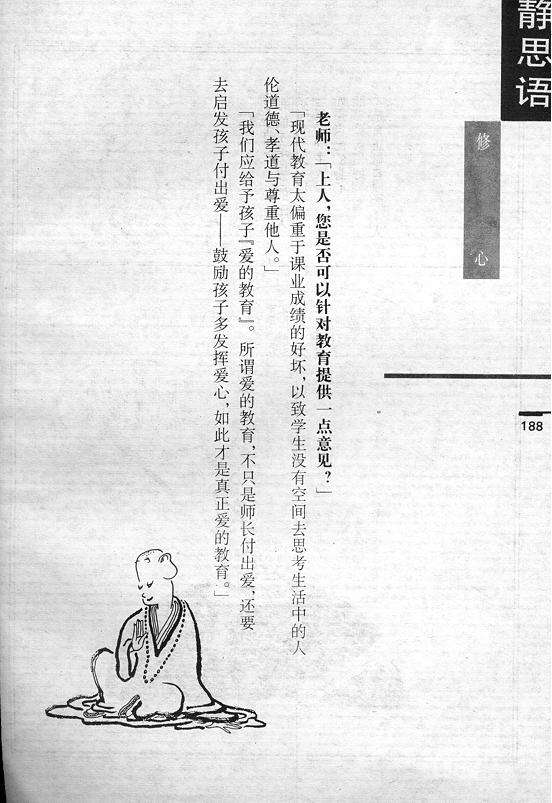 静思语
修心
188
老师：「上人，您是否可以针对教育提供一点意见？」
「现代教育太偏重于课业成绩的好坏，以致学生没有空间去思考生活中的人
伦道德、孝道与尊重他人。」
「我们应给予孩子『爱的教育』。所谓爱的教育，不只是师长付出爱，还要
去启发孩子付出爱——鼓励孩子多发挥爱心，如此才是真正爱的教育。」